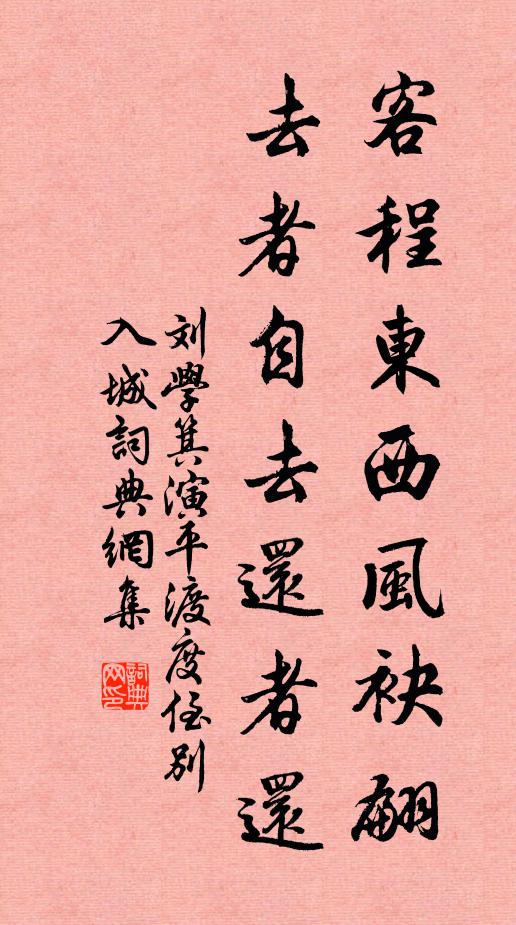 客程東西風袂翩
去者自去還者還
刘學箕演平渡度侄别
入城詞典網集
詞典网印